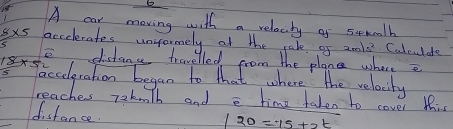 6
A car moving with a velocity of 54kmlh
accelerates uniformely at the rate of 2mls² Calculate
ē distance travelled from the place where ē
acceleration began to that where the velocity
reaches 72kmlh and ē time taken to cover this
distance.
20 = 15 + 2t
8x5
18x5
5